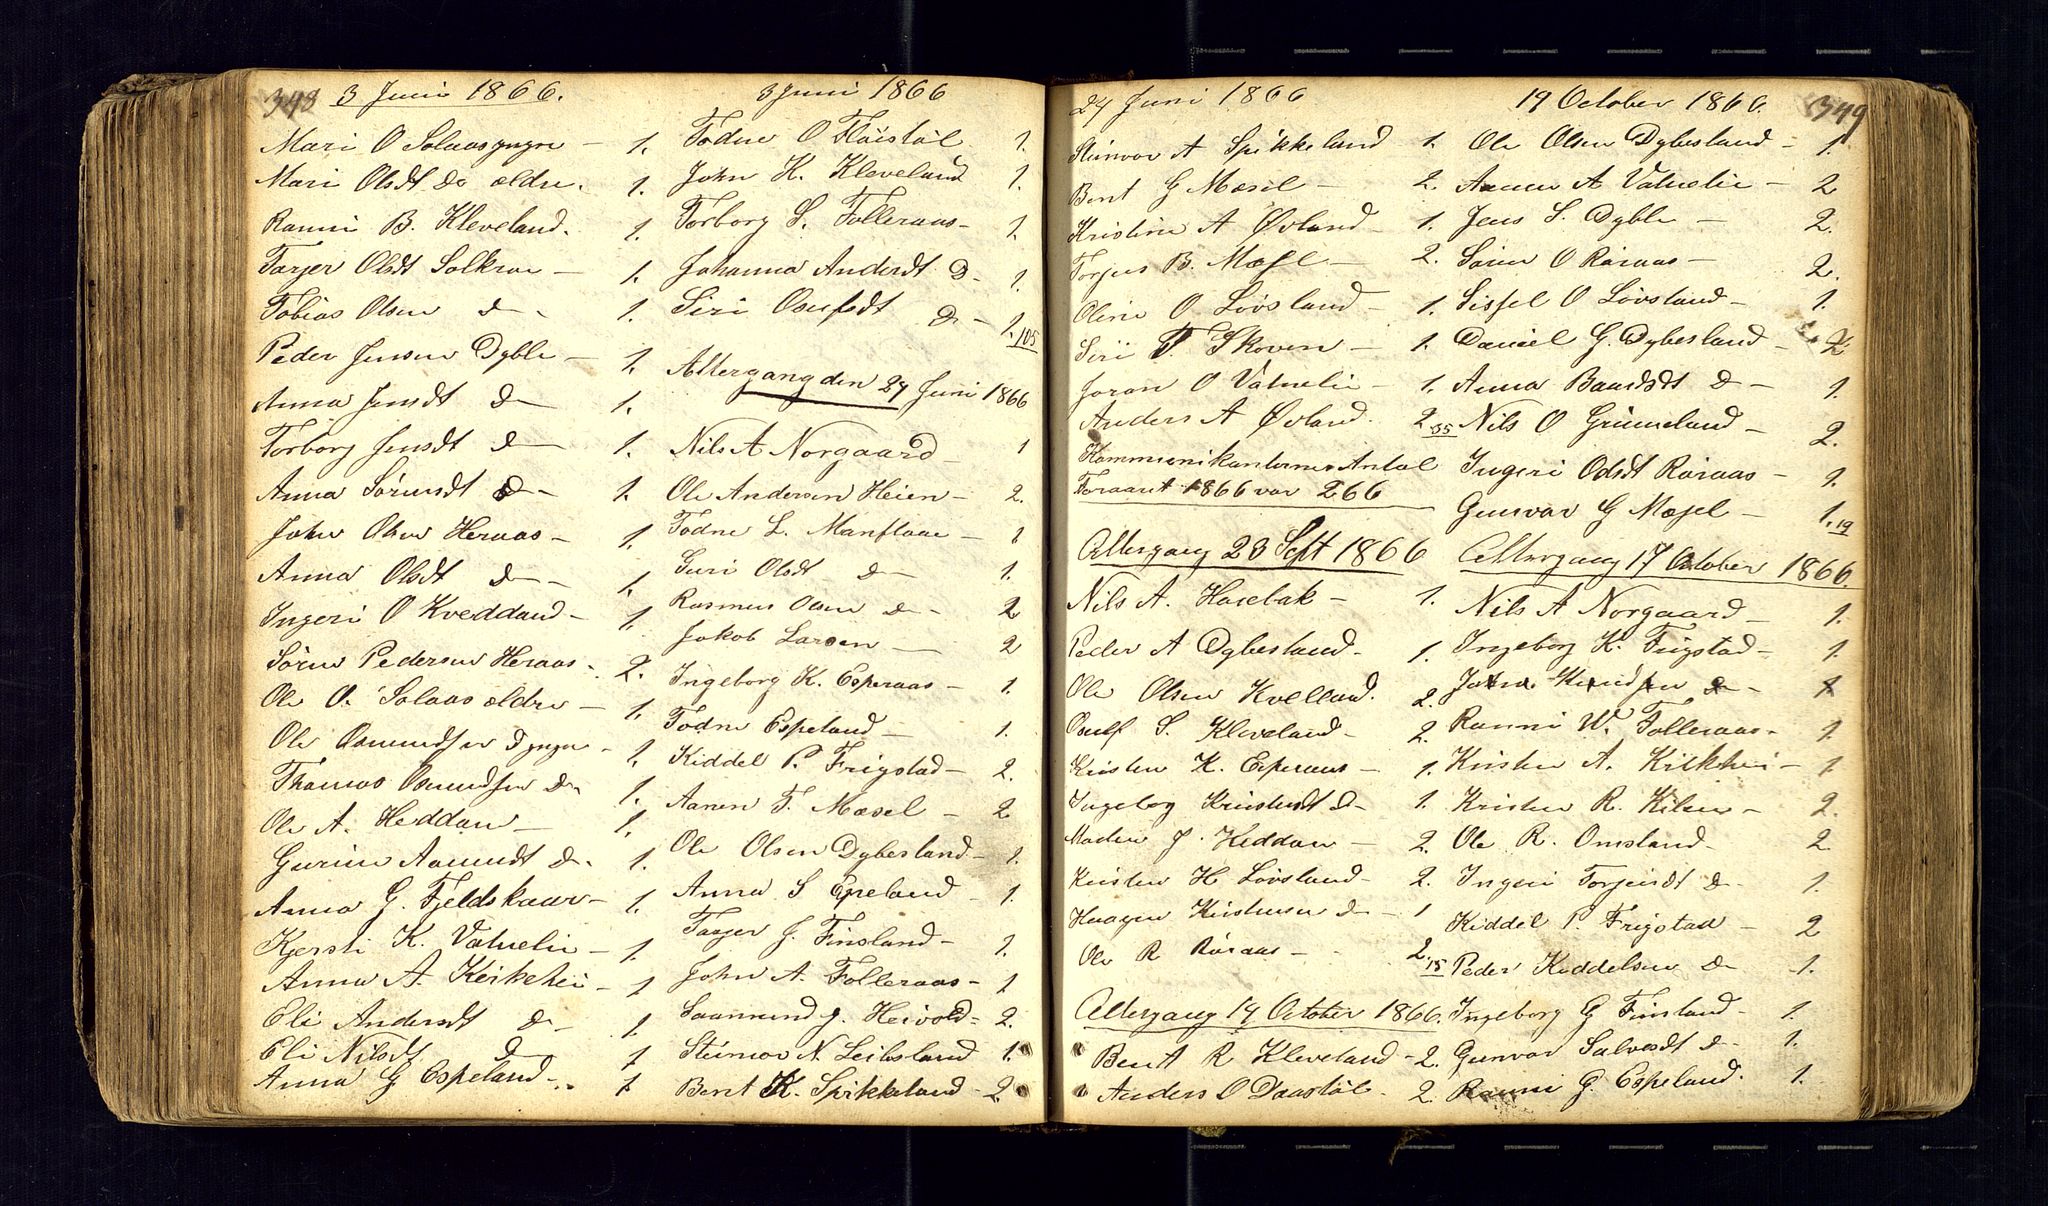 348 3 Juni 1866.
Mari O Solaas yngre — 1.
Mari Olsdt Do ældre. 1.
Ranni B. Kleveland. 1.
Tarjer Olsdt Solkroe — 1.
Tobias Olsen D — 1.
Peder Jensen Dyble — 1.
Anna Jensdt D — 1.
Torborg Jensdt D — 1.
Anna Sörensdt D — 1.
John Olsen Heraas — 1.
Anna Olsdt D — 1.
Ingeri O Kveddand — 1.
Sören Pedersen Heraas. 2.
Ole O. Solaas ældre — 1.
Ole Osmundsen D yngre — 1.
Thomas Osmundsen D. 1.
Ole A. Heddan — 1.
Gurine Aamundt D. 1.
Anna G. Fjeldskaar — 1.
Kjersti K. Vatnelie — 1.
Anna A. Keikehei — 1
Eli Andersdt D — 1.
Eli Nilsdt D 1
Anna G Espeland — 1.
3 Juni 1866
Todne O Flöistöl 1.
John K. Kleveland 1.
Torborg S. Folleraas — 1.
Johanna Andersdt D — 1.
Siri Osulfsdt D — 1. 105
Altergang den 24 Juni 1866
Nils A Norgaard — 1
Ole Andersen Heien — 2.
Todne L. Manflaae — 1
Guri Olsdt D — 1.
Rasmus Olsen D — 2
Jakob Larsen — 2
Ingeborg K. Esperaas — 1.
Todne Espeland — 1.
Kiddel P. Frigstad — 2.
Aanen T. Mæsel — 2
Ole Olsen Dybesland — 1.
Anna S Epeland — 1.
Taajer G. Finsland — 1.
John A. Folleraas — 1
Saamund G. Heivold — 2.
Steinvor N. Leibsland 1.
Bent K. Spikkeland — 2.
24 Juni 1866
Steinvor A Spikkeland 1.
Bent G Mæsel — 2.
Kristine A Øvland — 1.
Torjus B. Mæsel — 2.
Oline O Lövsland — 1.
Siri T. Skoven — 1.
Joran O Vatnelie — 1.
Anders A Øvland. 2 35
Kommunikanternes Antal
Foraaret 1866 var 266
Altergang 23 Sept 1866
Nils A. Haxebak — 1.
Peder A Dybesland. 1.
Ole Olsen Kvelland. 2.
Osulf S. Kleveland — 2
Kristen K. Esperaas — 1.
Ingeborg Kristensdt D — 1.
Maden J. Heddan — 2.
Kristen H Lövsland — 2.
Haagen Kristensen D — 1
Ole R Röiraas — 2. 15
Altergang 14 October 1866.
Bent R Kleveland — 2.
Anders O Daastöl — 2.
19 October 1866. 349
Ole Olsen Dybesland — 1.
Aanen A Vatnelie — 2
Jens S. Dyble — 2.
Sören O Röiraas — 2.
Sissel O Lövsland — 1.
Daniel G. Dybesland — 2
Anna Baardsdt D — 1.
Nils O Grimeland — 2.
Ingeri Odsdt Röiraas — 1.
Gunvor G Mæsel — 1. 19
Altergang 17 October 1866.
Nils A Norgaard — 1.
Ingeborg K. Frigstad — 1.
John Knudsen D — 1
Ranni W. Folleraas — 1.
Kristen A. Kilkhei — 1
Kristen R. Kilen — 2.
Ole R. Omsland. 2.
Ingeri Torjensdt D — 1.
Kiddel P. Frigstad — 2
Peder Kiddelsen D — 1.
Ingeborg G Finsland — 1.
Gunvor Salvesdt D — 1.
Ranni G. Espeland. 1.